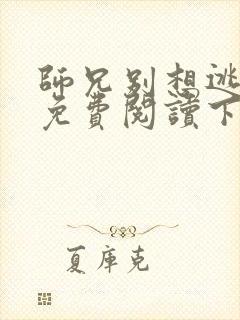 師兄別想逃
免費閱讀下
夏庫克